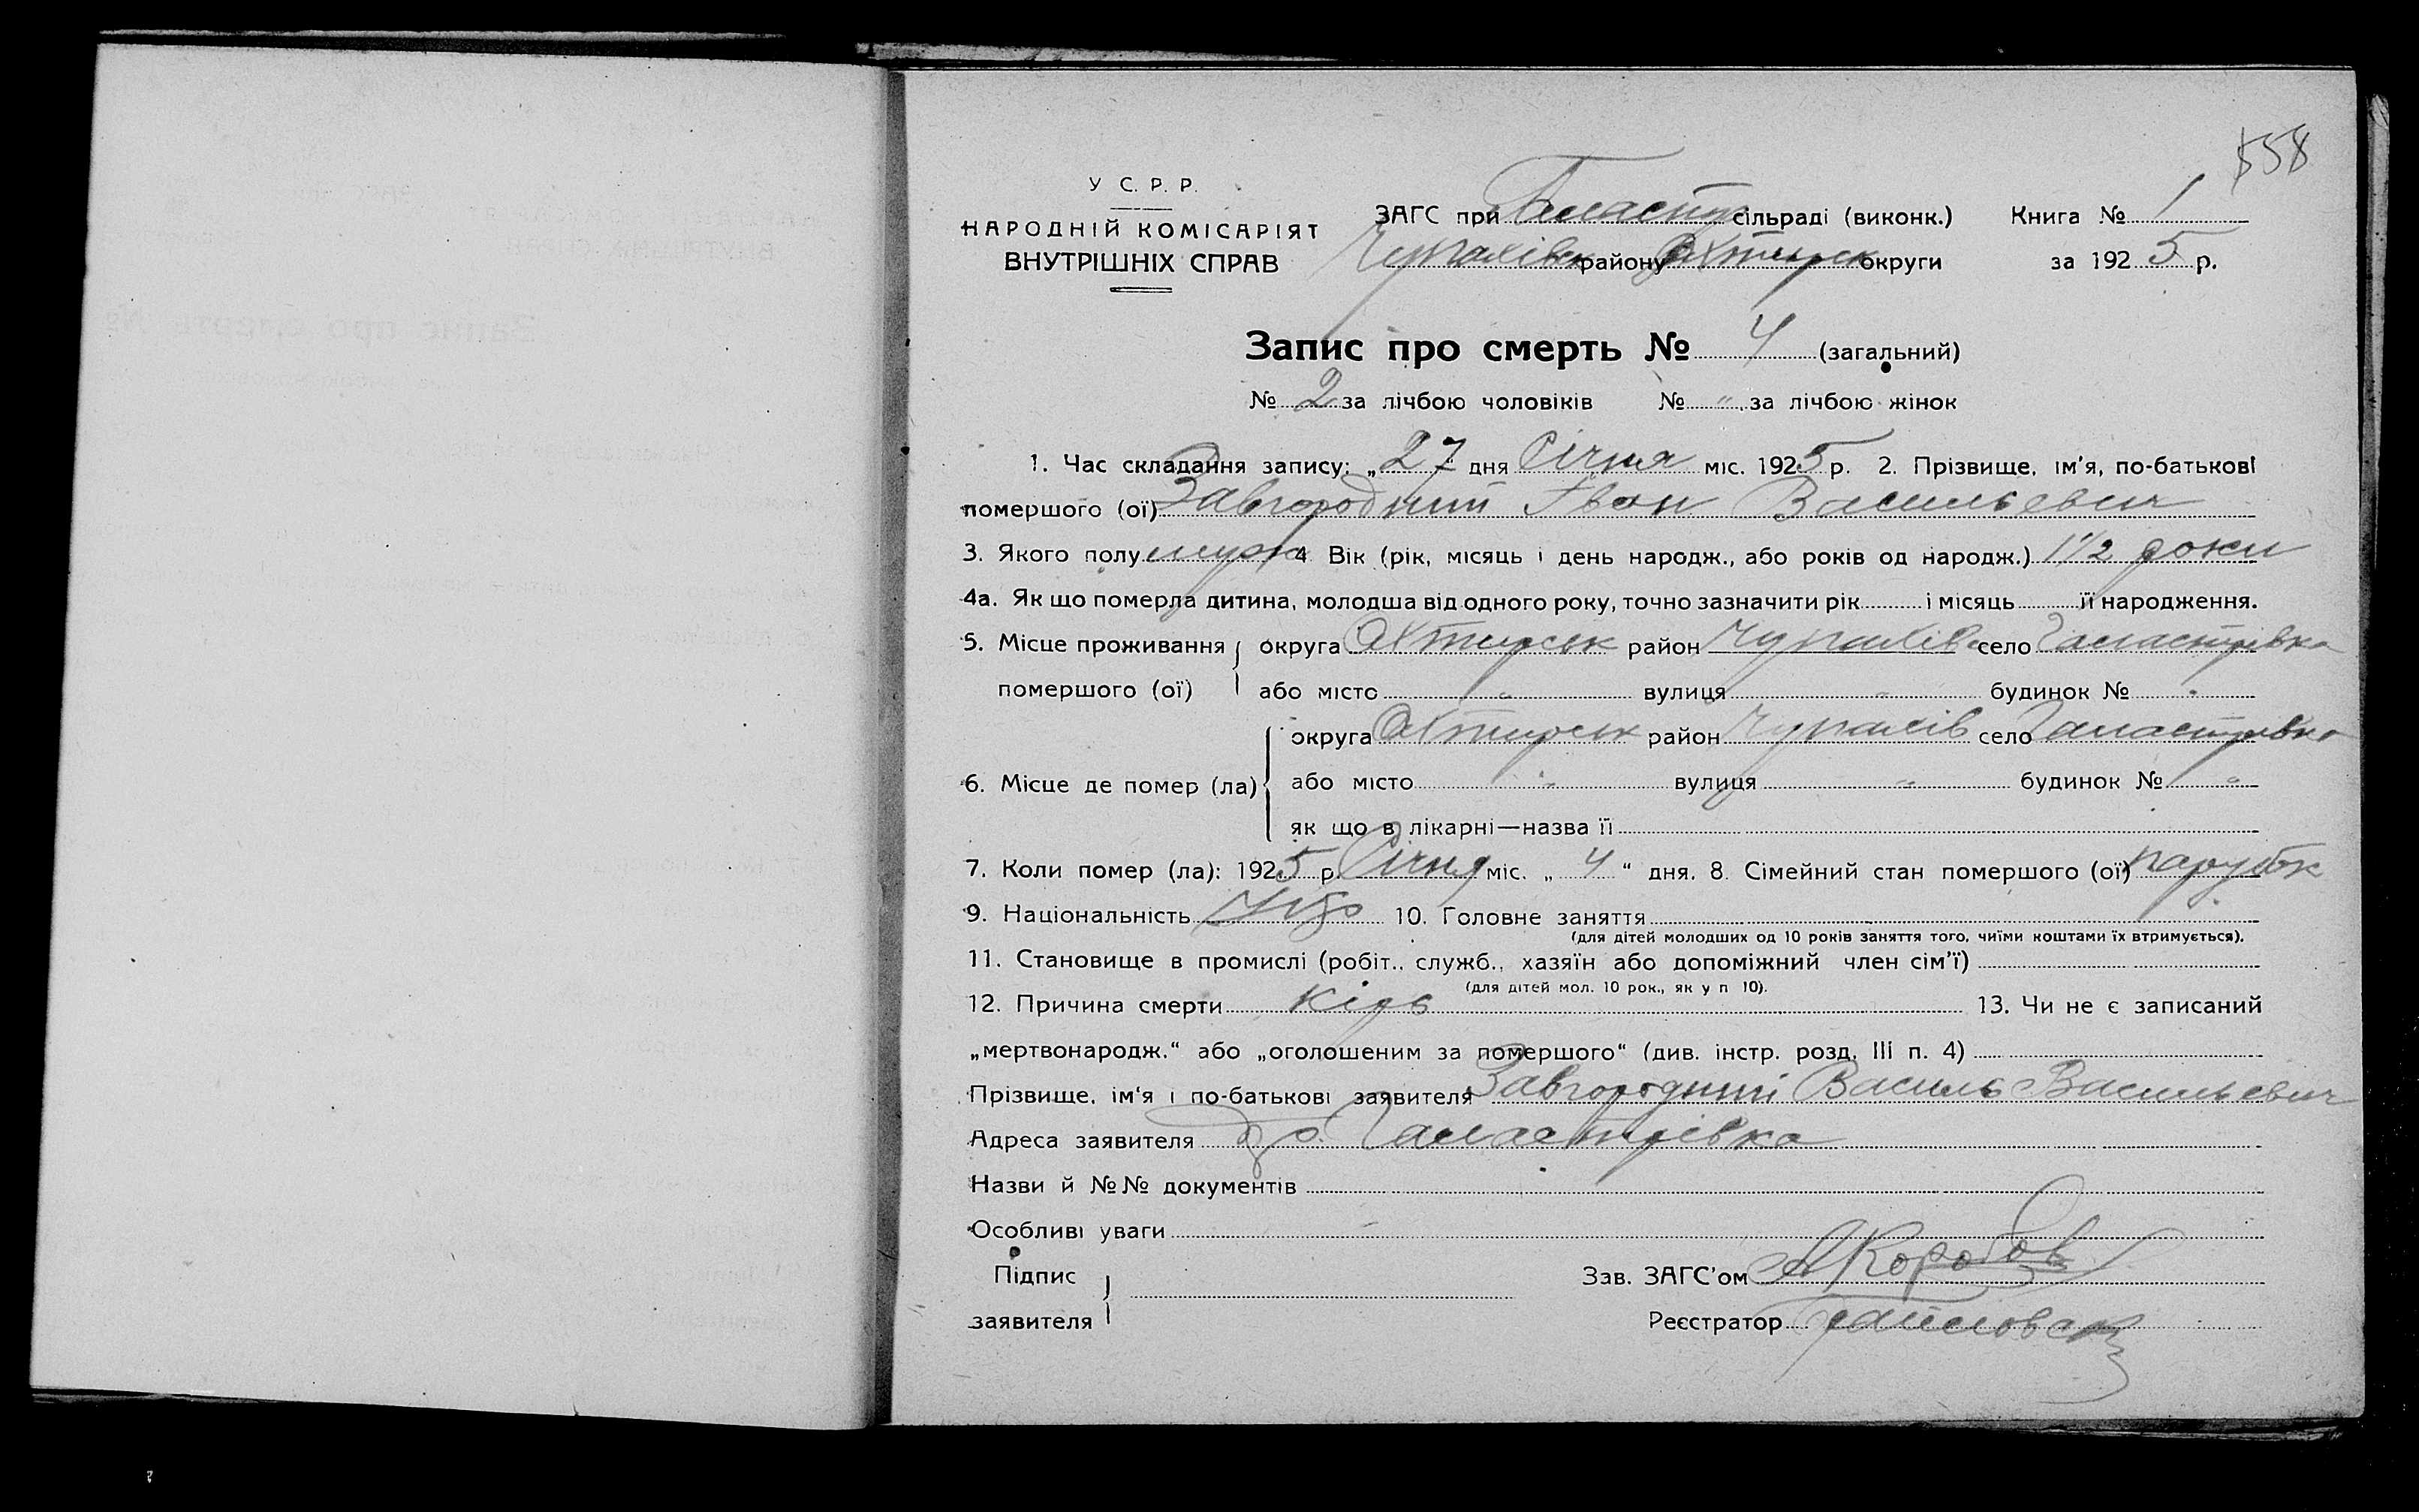 558
У С. Р. Р.
НАРОДНІЙ КОМІСАРІЯТ
ВНУТРІШНІХ СПРАВ
ЗАГС при сільраді (виконк.) Книга № 1
Чупахівськ району Охтирськ округи за 1925 р.
Запис про смерть № 4 (загальний)
№ 2 за лічбою чоловіків № " за лічбою жінок
1. Час складання запису: „ 27 дня Січня міс. 1925 р. 2. Прізвище, ім'я, по-батькові
помершого (ої) Завгородний Іван Васильевич
3. Якого полу муж 4 Вік (рік, місяць і день народж., або років од народж.) 1 1/2 роки
4а. Як що померла дитина, молодша від одного року, точно зазначити рік і місяць її народження.
5. Місце проживання округа Охтирськ район Чупахів село Галастрівка
помершого (ої) або місто " вулиця " будинок № "
округа Охтирськ район Чупахів село Галастрівка
6. Місце де помер (ла) або місто " вулиця " будинок № "
як що в лікарні—назва її
7. Коли помер (ла): 1925 р. Січня міс. „ 4 “ дня. 8. Сімейний стан помершого (ої) парубок
9. Національність Укр 10. Головне заняття
(для дітей молодших од 10 років заняття того, чиїми коштами їх втримується).
11. Становище в промислі (робіт., служб., хазяїн або допоміжний член сім'ї)
(для дітей мол. 10 рок., як у п 10).
12. Причина смерти Кірь 13. Чи не є записаний
„мертвонародж.“ або „оголошеним за помершого“ (див. інстр. розд. ІІІ п. 4)
Прізвище, ім'я і по-батькові заявителя Завгородний Василь Васильевич
Адреса заявителя Галастрівка
Назви й №№ документів
Особливі уваги
Підпис
заявителя
Зав. ЗАГС'ом АКоробов
Реєстратор